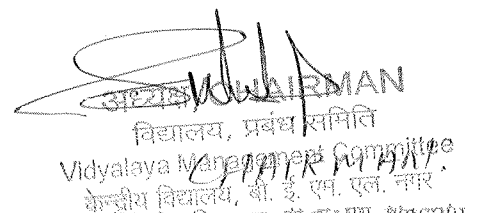 अध्यक्ष/CHAIRMAN
विद्यालय, प्रबंध समिति
Vidyalaya Management Committee
CHAIRMAN.
केन्द्रीय विद्यालय, बी. ई. एम. एल. नगर